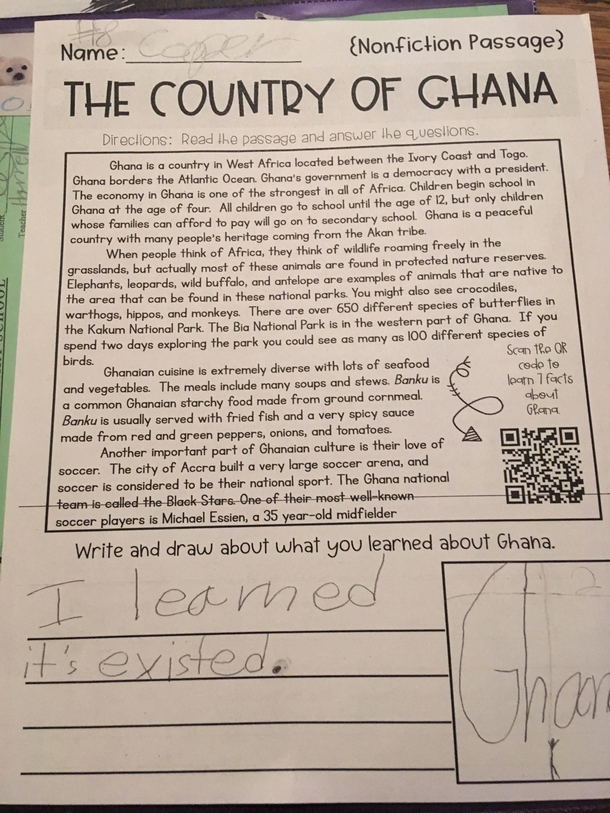 #18
Name: Cooper {Nonfiction Passage}
THE COUNTRY OF GHANA
Directions: Read the passage and answer the questions.
Ghana is a country in West Africa located between the Ivory Coast and Togo.
Ghana borders the Atlantic Ocean. Ghana's government is a democracy with a president.
The economy in Ghana is one of the strongest in all of Africa. Children begin school in
Ghana at the age of four. All children go to school until the age of 12, but only children
whose families can afford to pay will go on to secondary school. Ghana is a peaceful
country with many people's heritage coming from the Akan tribe.
When people think of Africa, they think of wildlife roaming freely in the
grasslands, but actually most of these animals are found in protected nature reserves.
Elephants, leopards, wild buffalo, and antelope are examples of animals that are native to
the area that can be found in these national parks. You might also see crocodiles,
warthogs, hippos, and monkeys. There are over 650 different species of butterflies in
the Kakum National Park. The Bia National Park is in the western part of Ghana. If you
spend two days exploring the park you could see as many as 100 different species of
birds.
Ghanaian cuisine is extremely diverse with lots of seafood
and vegetables. The meals include many soups and stews. Banku is
a common Ghanaian starchy food made from ground cornmeal.
Banku is usually served with fried fish and a very spicy sauce
made from red and green peppers, onions, and tomatoes.
Another important part of Ghanaian culture is their love of
soccer. The city of Accra built a very large soccer arena, and
soccer is considered to be their national sport. The Ghana national
team is called the Black Stars. One of their most well-known
soccer players is Michael Essien, a 35 year-old midfielder
Scan the QR
code to
learn 7 facts
about
Ghana.
Write and draw about what you learned about Ghana.
I learned
it's existed.
Ghan
Student
Teacher